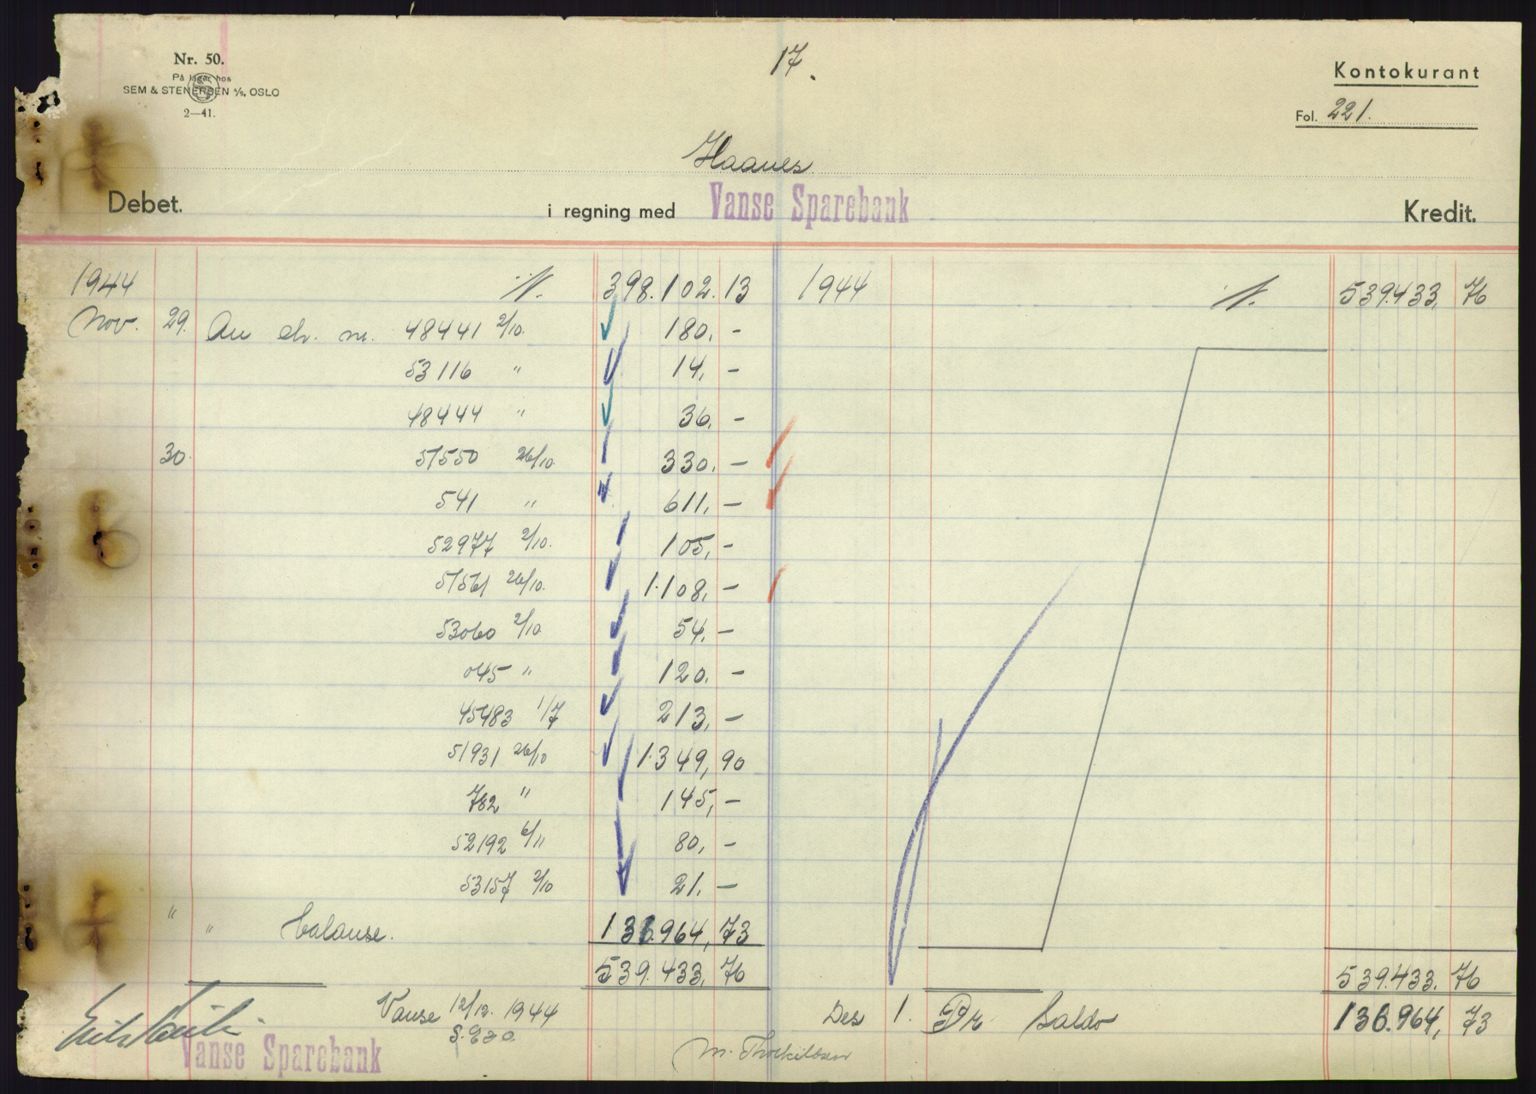 Nr. 50.
På lager hos
SEM & STENERSEN A/S, OSLO
2—41.
17.
Kontokurant
Fol. 221.
Haanes
Debet. i regning med Vanse Sparebank Kredit.
1944 398.102.13 1944 539.433, 76
Nov. 29. An ch. nr. 48441 2/10. 180, -
53116 " 14, -
48444 " 36, -
30. 51550 26/10. 330, -
541 " 611, -
52977 2/10. 105, -
51561 26/10. 1.108, -
53060 2/10 54, -
045 " 120. -
45483 1/7 213, -
51931 26/10 1.349, 90
782 " 145, -
52192 6/11 80, -
53157 2/10 21. -
" " balanse. 136.964, 73
539.433, 76 539.433. 76
Vanse 12/12. 1944 Des 1. Pr. Saldo 136.964, 73
Vanse Sparebank